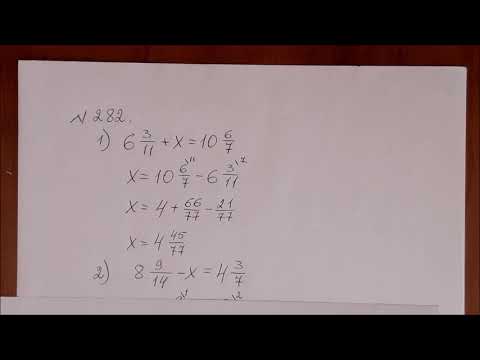 N 282.
1) 6 3/11 + x = 10 6/7
x = 10 6/7 \11 - 6 3/11 \7
x = 4 + 66/77 - 21/77
x = 4 45/77
2) 8 9/14 - x = 4 3/7